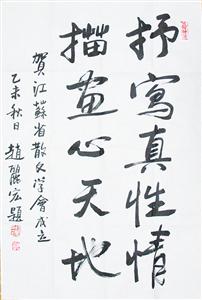 抒寫真性情
描畫心天地
賀江蘇省散文學會成立
乙未秋日
趙麗宏題